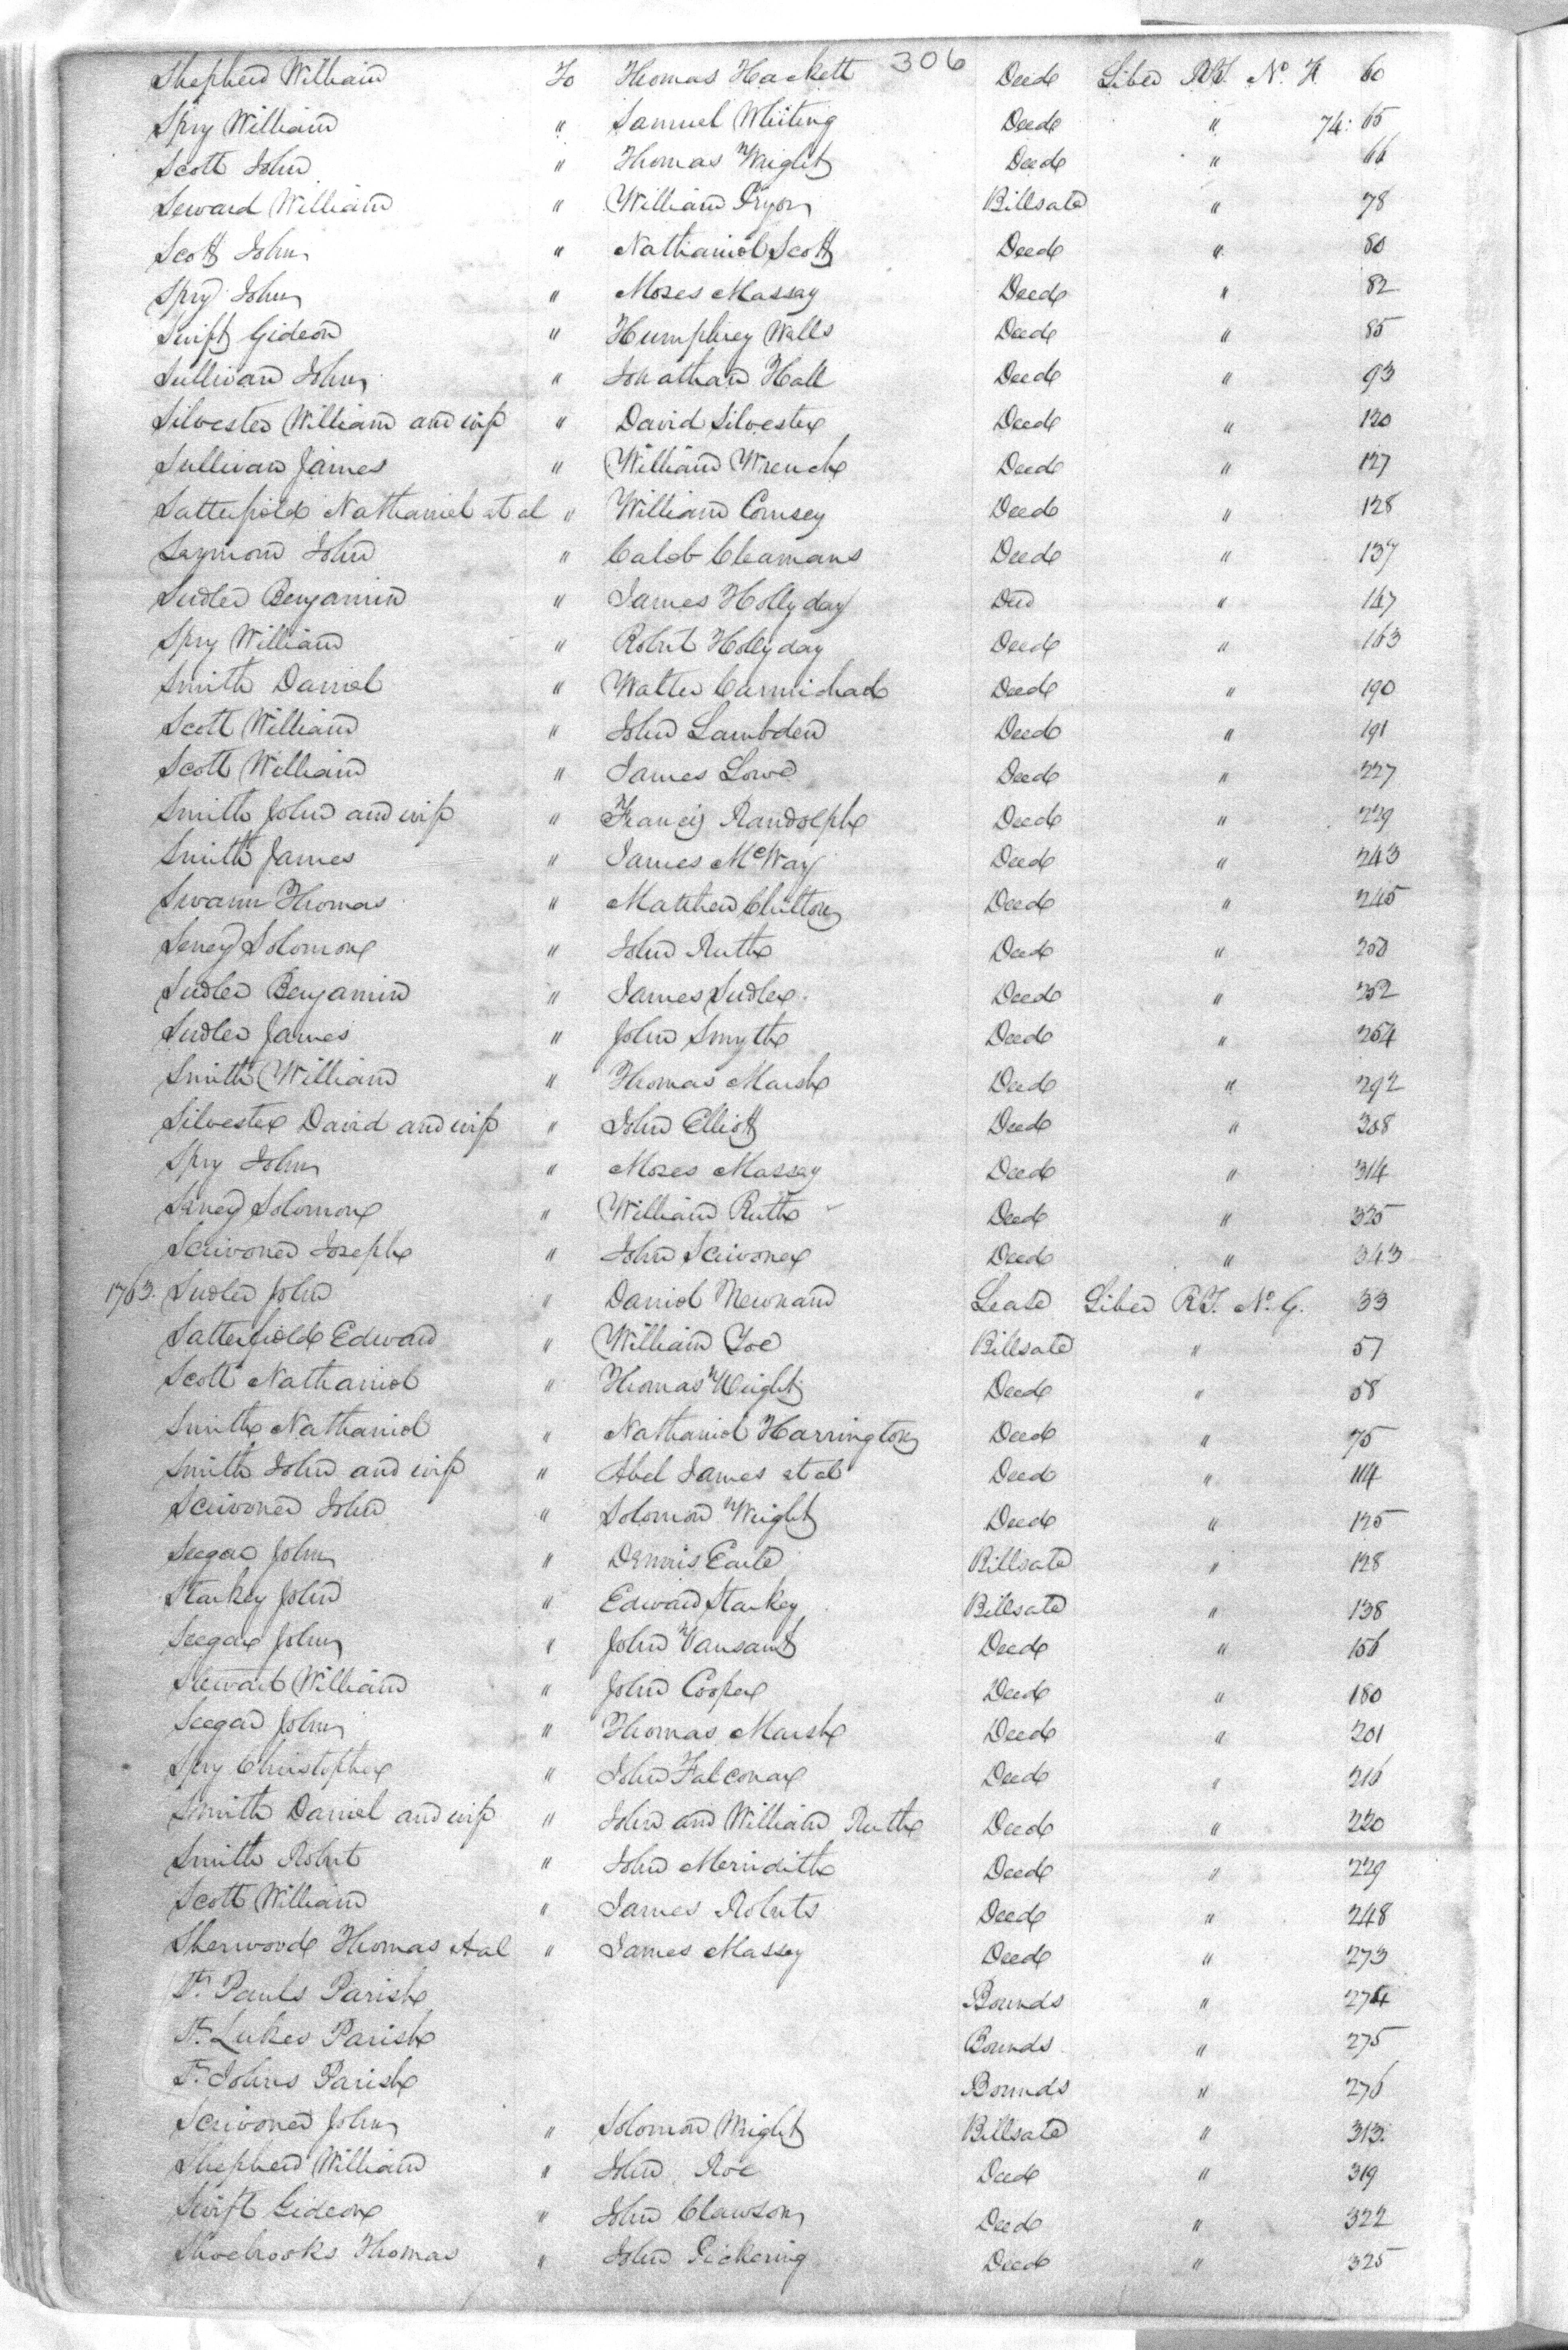 306
Shepherd William To Thomas Hackett Deed Liber R.T. No. F. 60
Spry William " Samuel Whiting Deed " 74: 65
Scott John " Thomas Wright Deed " 66
Seward William " William Pryor Billsale " 78
Scott John " Nathaniel Scott Deed " 80
Spry John " Moses Massay Deed " 82
Swift Gideon " Humphrey Wells Deed " 85
Sullivan John " Jonathan Hall Deed " 93
Silvester William and wife " David Silvester Deed " 120
Sullivan James " William Wrench Deed " 127
Satterfield Nathaniel et al " William Comsey Deed " 128
Saymon John " Caleb Cleamans Deed " 137
Sudler Benjamin " James Hollyday Deed " 147
Spry William " Robert Hollyday Deed " 163
Smith Daniel " Walter Carmichael Deed " 190
Scott William " John Lambden Deed " 191
Scott William " James Lowe Deed " 227
Smith John and wife " Francis Randolph Deed " 229
Smith James " James McWay Deed " 243
Swann Thomas " Matthew Chilton Deed " 245
Seney Solomon " John Ruth Deed " 250
Sudler Benjamin " James Sudler Deed " 252
Sudler James " John Smyth Deed " 254
Smith William " Thomas Marsh Deed " 292
Silvester David and wife " John Elliott Deed " 308
Spry John " Moses Massay Deed " 314
Seney Solomon " William Ruth Deed " 325
Scrivoner Joseph " John Scrivoner Deed " 343
1763. Sudler John " Daniel Mewnam Lease Liber R.T. No. G. 33
Satterfield Edward " William Toe Billsale " 57
Scott Nathaniel " Thomas Wright Deed " 58
Smith Nathaniel " Nathaniel Harrington Deed " 75
Smith John and wife " Abel James et al Deed " 114
Scrivoner John " Solomon Wright Deed " 125
Seegar John " Dennis Earle Billsale " 128
Starkey John " Edward Starkey Billsale " 138
Seegar John " John Vansant Deed " 156
Stewart William " John Cooper Deed " 180
Seegar John " Thomas Marsh Deed " 201
Spry Christopher " John Falconar Deed " 216
Smith Daniel and wife " John and William Ruth Deed " 220
Smith Robert " John Meridith Deed " 229
Scott William " James Roberts Deed " 248
Sherwood Thomas et al " James Massey Deed " 273
St. Pauls Parish Bounds " 274
St. Lukes Parish Bounds " 275
St. Johns Parish Bounds " 276
Scrivoner John " Solomon Wright Billsale " 313
Shepherd William " John Roe Deed " 319
Swift Gideon " John Clawson Deed " 322
Shoebrooks Thomas " John Pickering Deed " 325